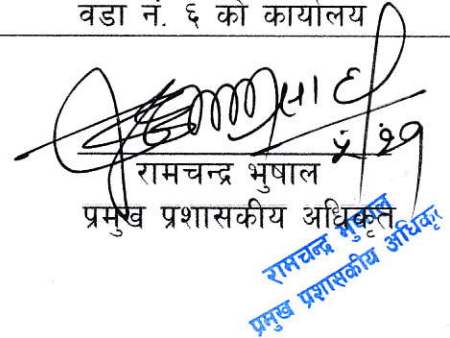 वडा नं. ६ को कार्यालय
रामचन्द्र भुषाल
प्रमुख प्रशासकीय अधिकृत
रामचन्द्र भुषाल
प्रमुख प्रशासकीय अधिकृ